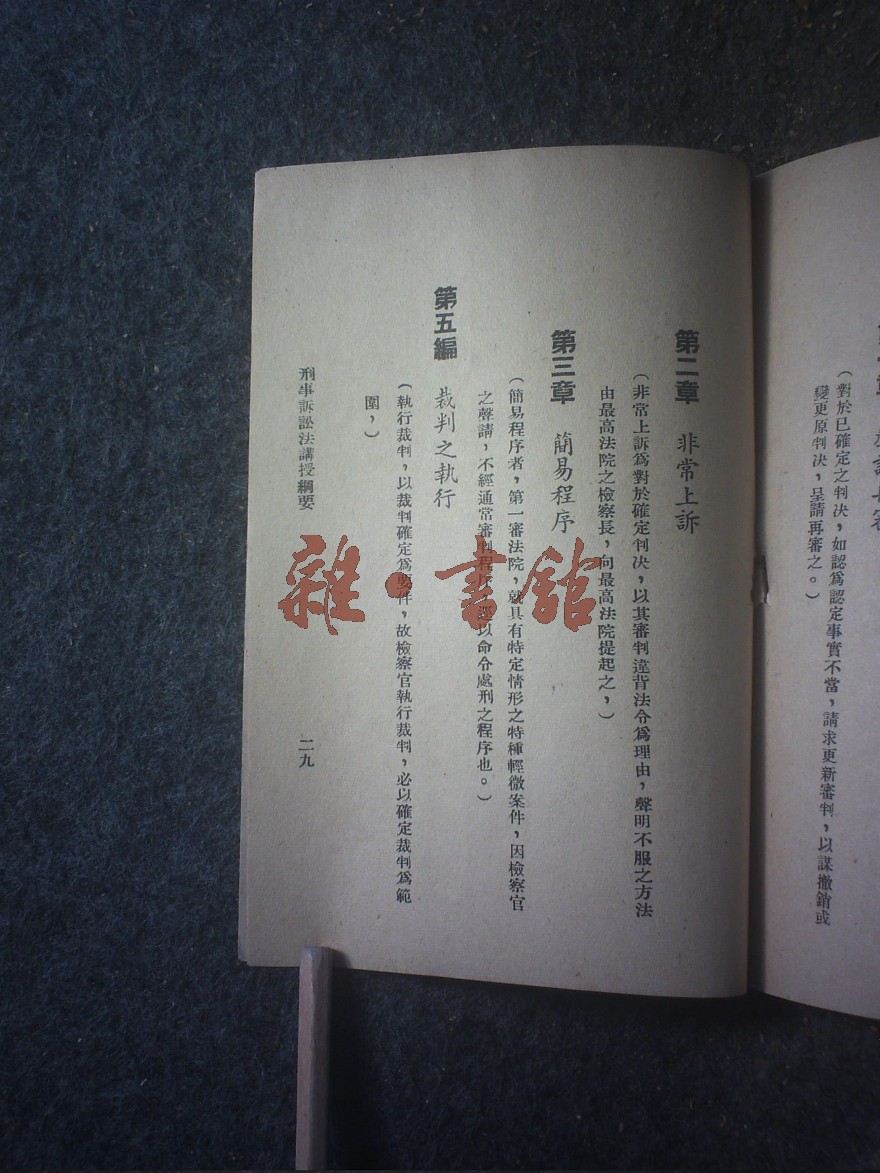 (對於已確定之判决，如認爲認定事實不當，請求更新審判，以謀撤銷或
變更原判决，呈請再審之。)
第二章 非常上訴
(非常上訴爲對於確定判决，以其審判違背法令爲理由，聲明不服之方法
由最高法院之檢察長，向最高法院提起之，)
第三章 簡易程序
(簡易程序者，第一審法院，就具有特定情形之特種輕微案件，因檢察官
之聲請，不經通常審判程序，逕以命令處刑之程序也。)
第五編 裁判之執行
(執行裁判，以裁判確定爲要件，故檢察官執行裁判，必以確定裁判爲範
圍，)
刑事訴訟法講授綱要
二九
雜·書館